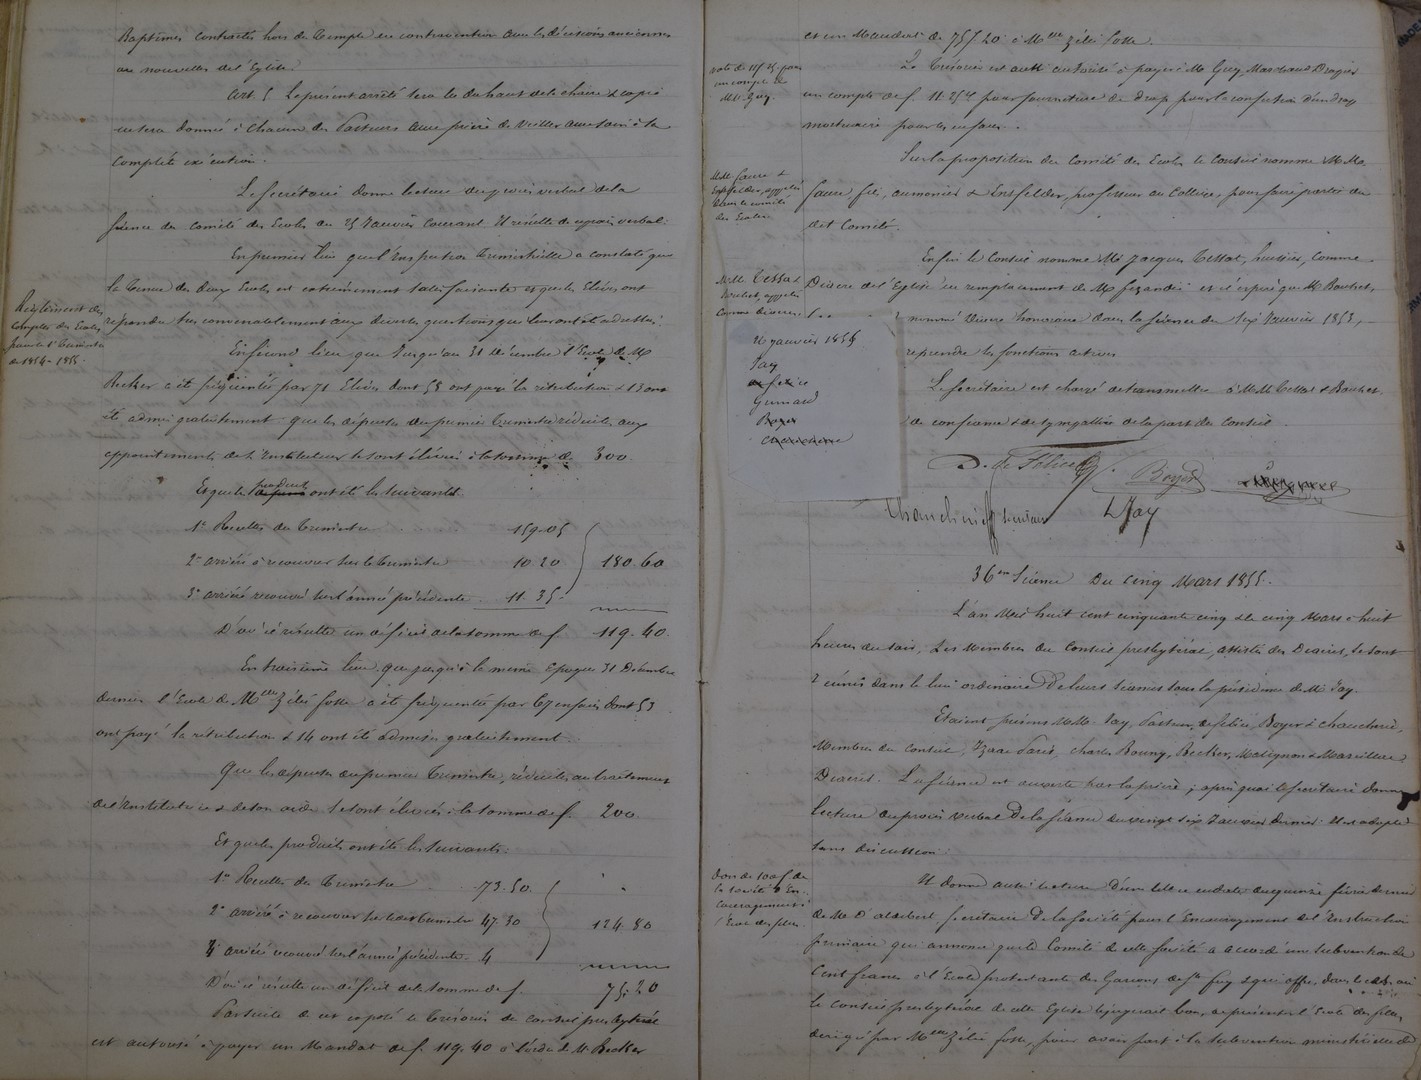 Baptêmes contractés hors du Temple en contravention avec les décisions anciennes
ou nouvelles de l'Eglise.
Art 5 Le présent arrêté sera lu du haut de la chaire & copie
en sera donnée à chacun des Pasteurs avec prière de veiller avec soin à sa
complète exécution.
Le Secrétaire donne lecture du procès verbal de la
Séance du Comité des Ecoles du 25 Janvier courant. Il résulte de ce procès verbal:
En premier lieu que l'Inspection Trimestrielle a constaté que
la tenue des deux Ecoles est extrêmement satisfaisante et que les Elèves ont
Règlement des
comptes des Ecoles
pour le 1er Trimestre
de 1854-1855
répondu très convenablement aux diverses questions qui leur ont été adressées.
En second lieu que jusqu'au 31 Décembre l'Ecole de M.
Becker a été fréquentée par 71 Elèves dont 58 ont payé la rétribution & 13 ont
été admis gratuitement que les dépenses du premier Trimestre réduites aux
appointements de l'Instituteur se sont élevées à la somme de 300.
Et que les produits ont été les suivants.
1° Recettes du Trimestre 159.05
2° arriéré à recouvrer sur le Trimestre 10.20 180.60
3° arriéré recouvré sur l'année précédente 11.35
D'où il résulte un déficit de la somme de f. 119.40
En troisième lieu, que jusqu'à la même Epoque 31 Décembre
dernier l'Ecole de Melle Zélie Fosse a été fréquentée par 67 enfans dont 53
ont payé la rétribution & 14 ont été admis gratuitement.
Que les dépenses du premier Trimestre, réduites au traitement
de l'Institutrice & de son aide se sont élevées à la somme de f. 200
Et que les produits ont été les suivants:
1° Recettes du Trimestre 73.50
2° arriéré à recouvrer sur le Trimestre 47.30 124.80
3° arriéré recouvré sur l'année précédente 4
D'où il résulte un déficit de la somme de f. 75.20
Par suite de cet exposé le Trésorier du Conseil presbytéral
est autorisé à payer un Mandat de f. 119.40 à l'ordre de M. Becker
et un Mandat de 75f.20 à Melle Zélie Fosse.
vote de 11f.25 pour
un compte de
M. Guy.
Le Trésorier est aussi autorisé à payer à M. Guy Marchand Drapier
un compte de f. 11.25c pour fourniture de drap pour la confection d'un drap
mortuaire pour les enfans.
MM. Faure &
Ensfelder, appelés
dans le comité
des Ecoles
Sur la proposition du Comité des Ecoles le Conseil nomme MM.
Faure, fils, aumonier & Ensfelder, professeur au Collège, pour faire partie du
dit Comité.
MM. Tessat &
Bouhet, appelés
comme diacres
Enfin le Conseil nomme Mr. Jacques Tessat, huissier, comme
Diacre de l'Eglise en remplacement de M. et il espère que M. Bouhet,
nommé Diacre honoraire dans la séance du six Janvier 1853,
reprendra les fonctions actives.
Le Secrétaire est chargé de transmettre à MM. Tessat & Bouhet
de confiance & de sympathie de la part du Conseil.
26 janvier 1855
Jay
de felice
Guinard
Boyer
Chaucherie
D. de Félice
Boyer
Chaucherie secrétaire
L Jay
36eme Séance Du cinq Mars 1855.
L'an Mil huit cent cinquante cinq & le cinq Mars à huit
heures du soir, Les Membres du Conseil presbytéral, assistés des Diacres, se sont
réunis dans le lieu ordinaire de leurs séances sous la présidence de M. Jay.
Etaient présens MM. Jay, Pasteur, de felice, Boyer & Chaucherie,
Membres du Conseil, Izaac Paris, Charles Becker, Matignon & Marcillere
Diacres. La séance est ouverte par la prière; après quoi le secrétaire donne
lecture du procès verbal de la séance du vingt six Janvier dernier. Il est adopté
sans discussion.
Don de 100f. de
la société d'En-
couragement à
l'Ecole des filles
Il donne aussi lecture d'une lettre en date du quinze février dernier
de M. secrétaire de la société pour l'Encouragement de l'Instruction
primaire qui annonce que le Comité de cette société a accordé une subvention de
Cent francs à l'Ecole protestante des Garçons de Ste Foy & qui offre, dans le cas où
le conseil presbytéral de cette Eglise le jugerait bon, de présenter l'Ecole des filles,
dirigée par Melle Zélie Fosse, pour avoir part à la subvention ministérielle de